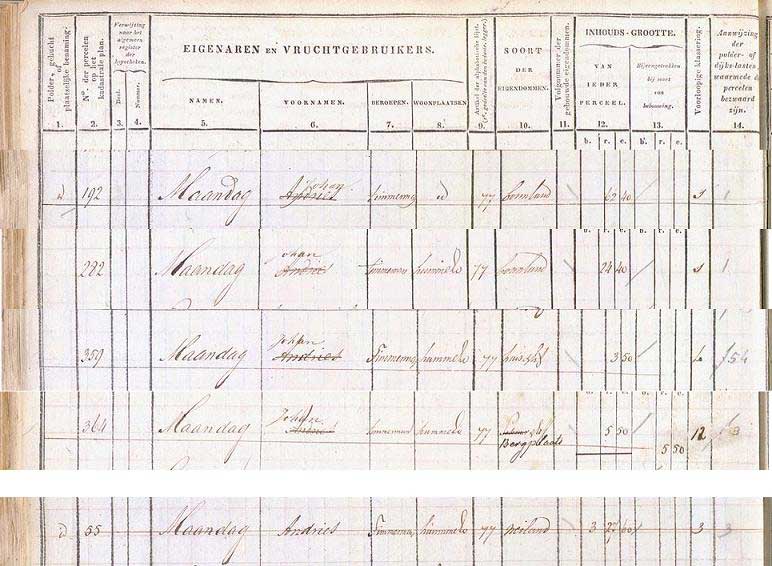 Polder, gehucht of plaatselijke benaming.
N.º der perceelen op het kadastrale plan.
Verwijzing naar het algemeen register der hypotheken.
Deel.
Nummer.
EIGENAREN EN VRUCHTGEBRUIKERS.
NAMEN.
VOORNAMEN.
BEROEPEN.
WOONPLAATSEN
SOORT DER EIGENDOMMEN.
Volgnommer der gebouwde eigendommen.
INHOUDS-GROOTTE.
VAN IEDER PERCEEL.
Bijeengetrokken bij soort van bebouwing.
Voorloopige klassering.
Aanwijzing der polder- of dijks-lasten waarmede de perceelen bezwaard zijn.
1. 2. 3. 4. 5. 6. 7. 8. 9. 10. 11. 12. 13. 14.
b. r. e. b. r. e.
id 192 Maandag Johan Andries timmerman id 77 bouwland 62 40 1
282 Maandag Johan Andries timmerman hummelo 77 bouwland 24 40 1
359 Maandag Johan Andries Timmerman hummelo 77 huis 3 50 54
364 Maandag Johan Andries timmerman hummelo 77 Bergplaats 5 50 5 50 12
id 55 Maandag Andries Timmerman hummelo 77 weiland 3 27 60 3 3